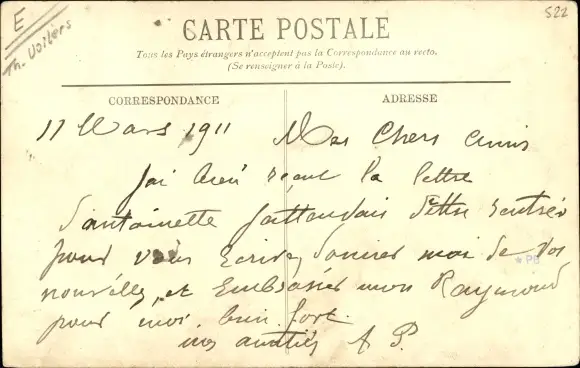 E
Th. Voiliers
522
CARTE POSTALE
Tous les Pays étrangers n'acceptent pas la Correspondance au recto.
(Se renseigner à la Poste).
CORRESPONDANCE
ADRESSE
11 Mars 1911
Mes Chers amis
J'ai bien reçut la lettre
d'antoinette J'attendais d'ettre rentrée
pour vous Ecrire, donnez moi de vos
nouvelles, et Embrassez mon Raymond
pour moi bien fort.
mes amitiés A P.
PB